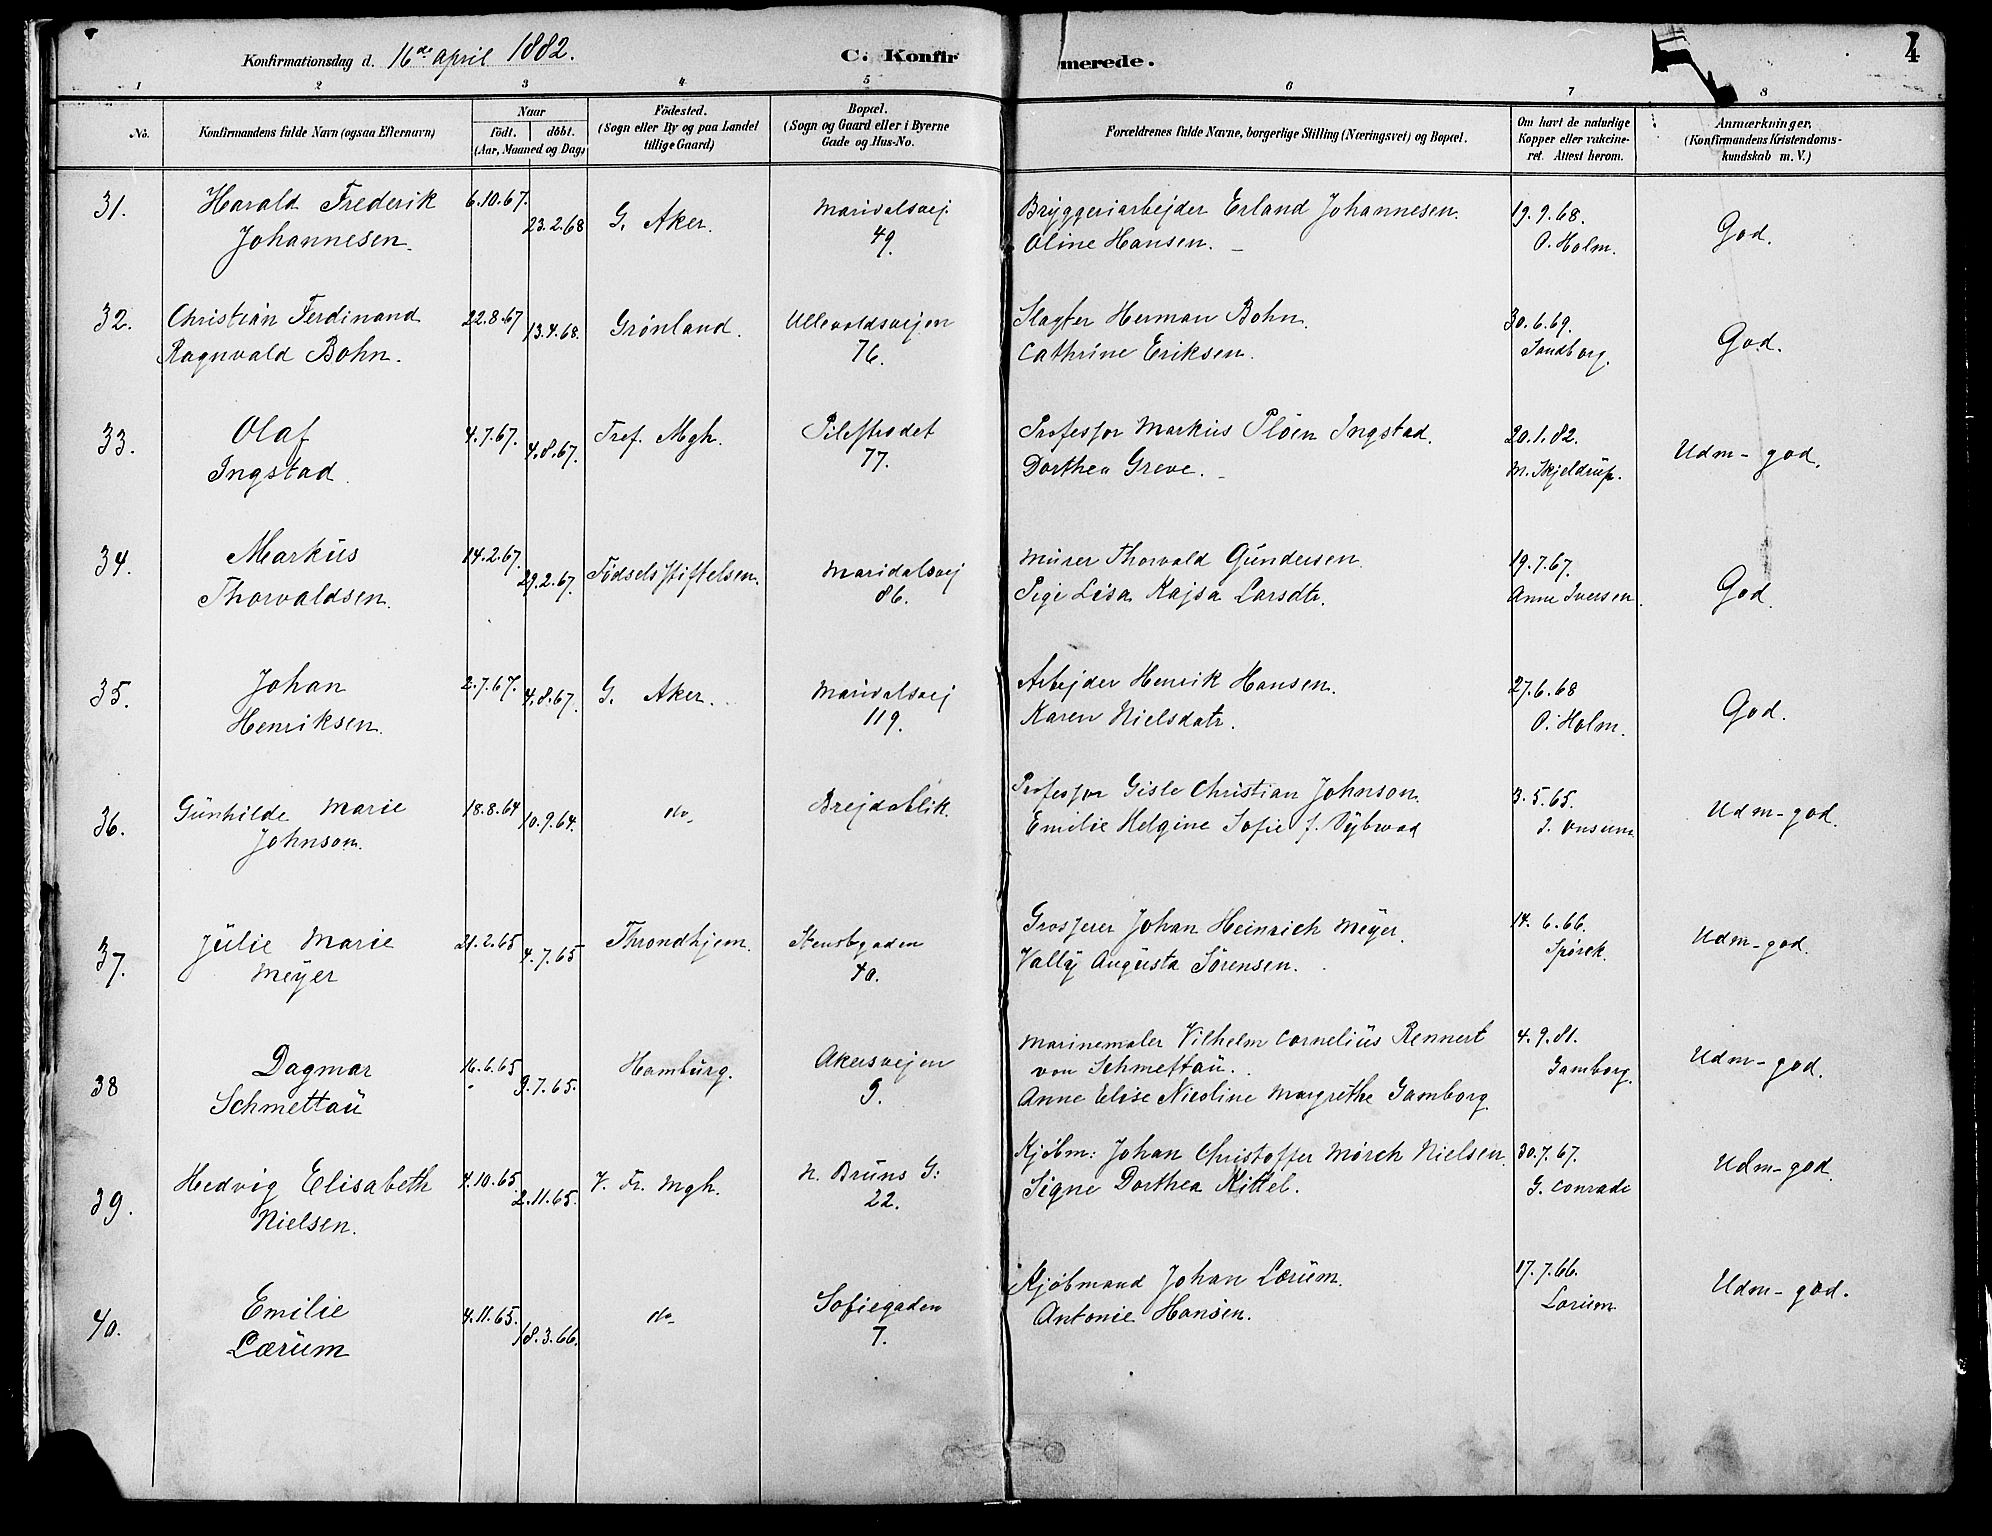 Konfirmationsdag d. 16de April 1882. C. Konfirmerede. 4
1 2 3 4 5 6 7 8
No. Konfirmandens fulde Navn (ogsaa Efternavn) Naar födt. döbt. (Aar, Maaned og Dag) Födested. (Sogn eller By og paa Landet tillige Gaard) Bopæl. (Sogn og Gaard eller i Byerne Gade og Hus-No. Forældrenes fulde Navne, borgerlige Stilling (Næringsvei) og Bopæl. Om havt de naturlige Kopper eller vakcineret. Attest herom. Anmærkninger, (Konfirmandens Kristendomskundskab m. V.)
31. Harald Frederik 6.10.67. 23.2.68 G. Aker. Maridalsvej. Bryggeriarbejder Erland Johannesen. 19.9.68. God.
Johannesen. 49. Oline Hansen. O. Holm.
32. Christian Ferdinand 22.8.67 13.4.68. Grönland. Ullevoldsveijen Slagter Herman Bohn. 30.6.69. God.
Ragnvald Bohn. 76. Cathrine Eriksen. Sandborg.
33. Olaf 4.7.67. 4.8.67. Tref. Mgh. Pilestrædet Professor Markus Pløen Ingstad. 20.1.82. Udm-god.
Ingstad. 77. Dorthea Greve. M. Skjeldrup.
34. Markus 14.2.67. 29.2.67. Fødselsstiftelsen. Maridalsvej Murer Thorvald Gundersen. 19.7.67. God.
Thorvaldsen. 86. Pige Lisa Kajsa Larsdtr. Anne Iversen.
35. Johan 2.7.67. 4.8.67. G. Aker. Maridalsvej Arbejder Henrik Hansen. 27.6.68 God.
Henriksen. 119. Karen Nielsdatr. O. Holm.
36. Gunhilde Marie 18.8.64 10.9.64. do Brejdablik. Professor Gisle Christian Johnson. 3.5.65. Udm-god.
Johnson. Emilie Helgine Sofie f. Dybwad J. Onsum
37. Julie Marie 21.2.65 4.7.65 Throndhjem. Stensbgaden Grosserer Johan Heinrich Meyer. 14.6.66. Udm-god.
Meyer 40. Vally Augusta Sørensen. Spørck.
38 Dagmar 16.6.65 9.7.65. Hamburg. Akersvejen Marinemaler Vilhelm Cornelius Rennert 4.9.81. Udm-god.
Schmettau 9. von Schmettau. Gamborg.
Anne Elise Nicoline Margrethe Gamborg
39. Hedvig Elisabeth 4.10.65. 2.11.65. V. Fr. Mgh. N. Bruns G: Kjøbm: Johan Christoffer Mørch Nielsen. 30.7.67. Udm-god.
Nielsen. 22. Signe Dorthea Kittel. G. Conradi
40. Emilie 4.11.65. 18.3.66. do Sofiegaden Kjøbmand Johan Lærum. 17.7.66. Udm-god.
Lærum 7. Antonie Hansen. Lærum